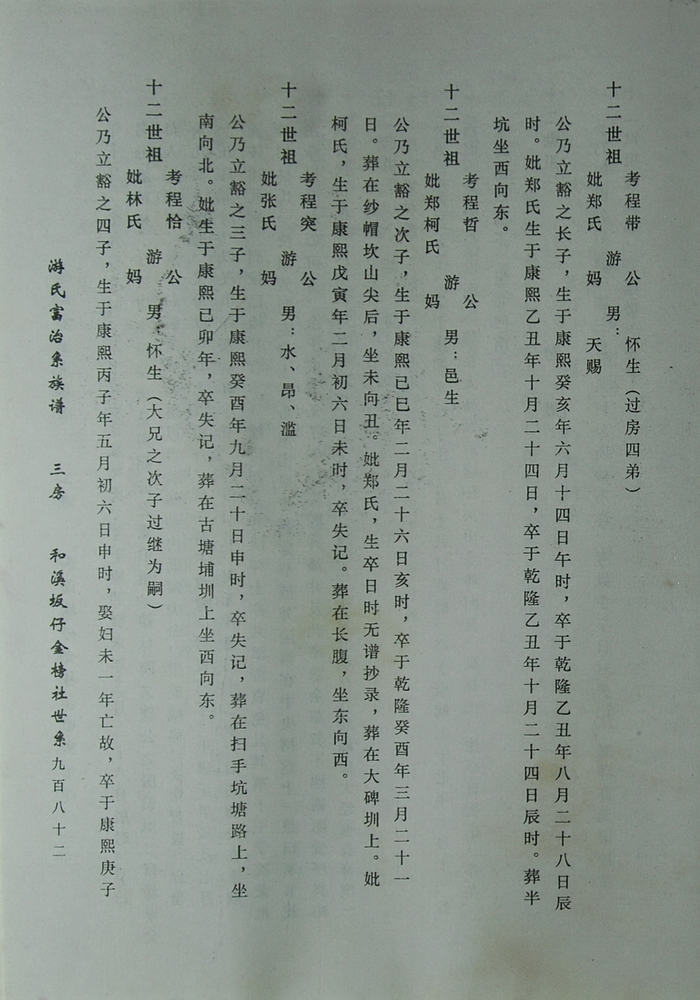 考程带　　公　　怀生（过房四弟）
十二世祖　　游　　男：
妣郑氏　　妈　　天赐
公乃立豁之长子，生于康熙癸亥年六月十四日午时，卒于乾隆乙丑年八月二十八日辰
时。妣郑氏生于康熙乙丑年十月二十四日，卒于乾隆乙丑年十月二十四日辰时。葬半
坑坐西向东。
考程哲　　公
十二世祖　　游　　男：邑生
妣郑柯氏　　妈
公乃立豁之次子，生于康熙己巳年二月二十六日亥时，卒于乾隆癸酉年三月二十一
日。葬在纱帽坎山尖后，坐未向丑。妣郑氏，生卒日时无谱抄录，葬在大碑圳上。妣
柯氏，生于康熙戊寅年二月初六日未时，卒失记。葬在长腹，坐东向西。
考程突　　公
十二世祖　　游　　男：水、昂、滥
妣张氏　　妈
公乃立豁之三子，生于康熙癸酉年九月二十日申时，卒失记，葬在扫手坑塘路上，坐
南向北。妣生于康熙己卯年，卒失记，葬在古塘埔圳上坐西向东。
考程恰　　公
十二世祖　　游　　男：怀生（大兄之次子过继为嗣）
妣林氏　　妈
公乃立豁之四子，生于康熙丙子年五月初六日申时，娶妇未一年亡故，卒于康熙庚子
游氏富治系族谱　　三房　　和溪坂仔金榜社世系九百八十二